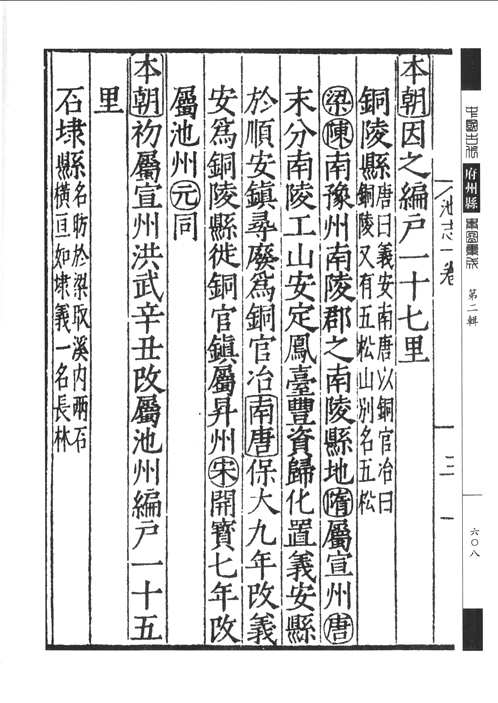 本朝因之編戶一十七里
銅陵縣唐曰義安南唐以銅官冶曰
銅陵又有五松山別名五松
梁陳南豫州南陵郡之南陵縣地隋屬宣州唐
末分南陵工山安定鳳臺豐資歸化置義安縣
於順安鎮尋廢為銅官冶南唐保大九年改義
安為銅陵縣徙銅官鎮屬昇州宋開寶七年改
屬池州元同
本朝初屬宣州洪武辛丑改屬池州編戶一十五
里
石埭縣名昉於梁取溪內兩石
橫亘如埭義一名長林
池志一卷
三
中國古代
府州縣
輿圖集成
第二輯
六〇八